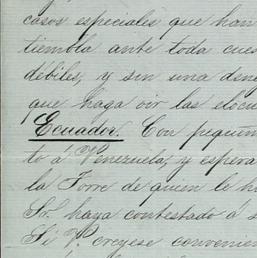 casos especiales que han
tiembla ante toda cues
débiles, y sin una den
que haga oir las elocu
Ecuador. Con pequeñ
to á Venezuela, y espera
la Torre de quien le h
Sr. haya contestado á s
Si V. creyese convenien